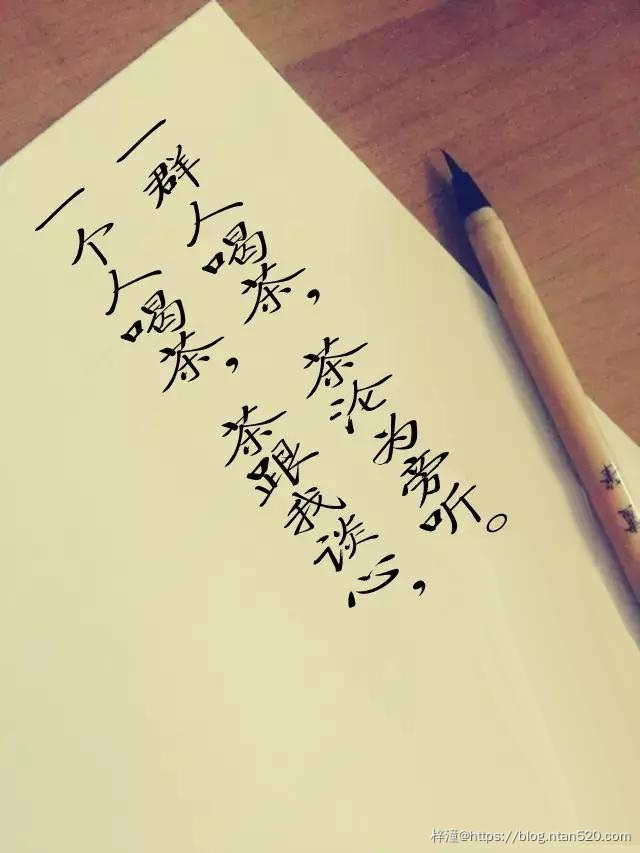 一个人喝茶，茶跟我谈心，
一群人喝茶，茶沦为旁听。
梓潼@https://blog.ntan520.com